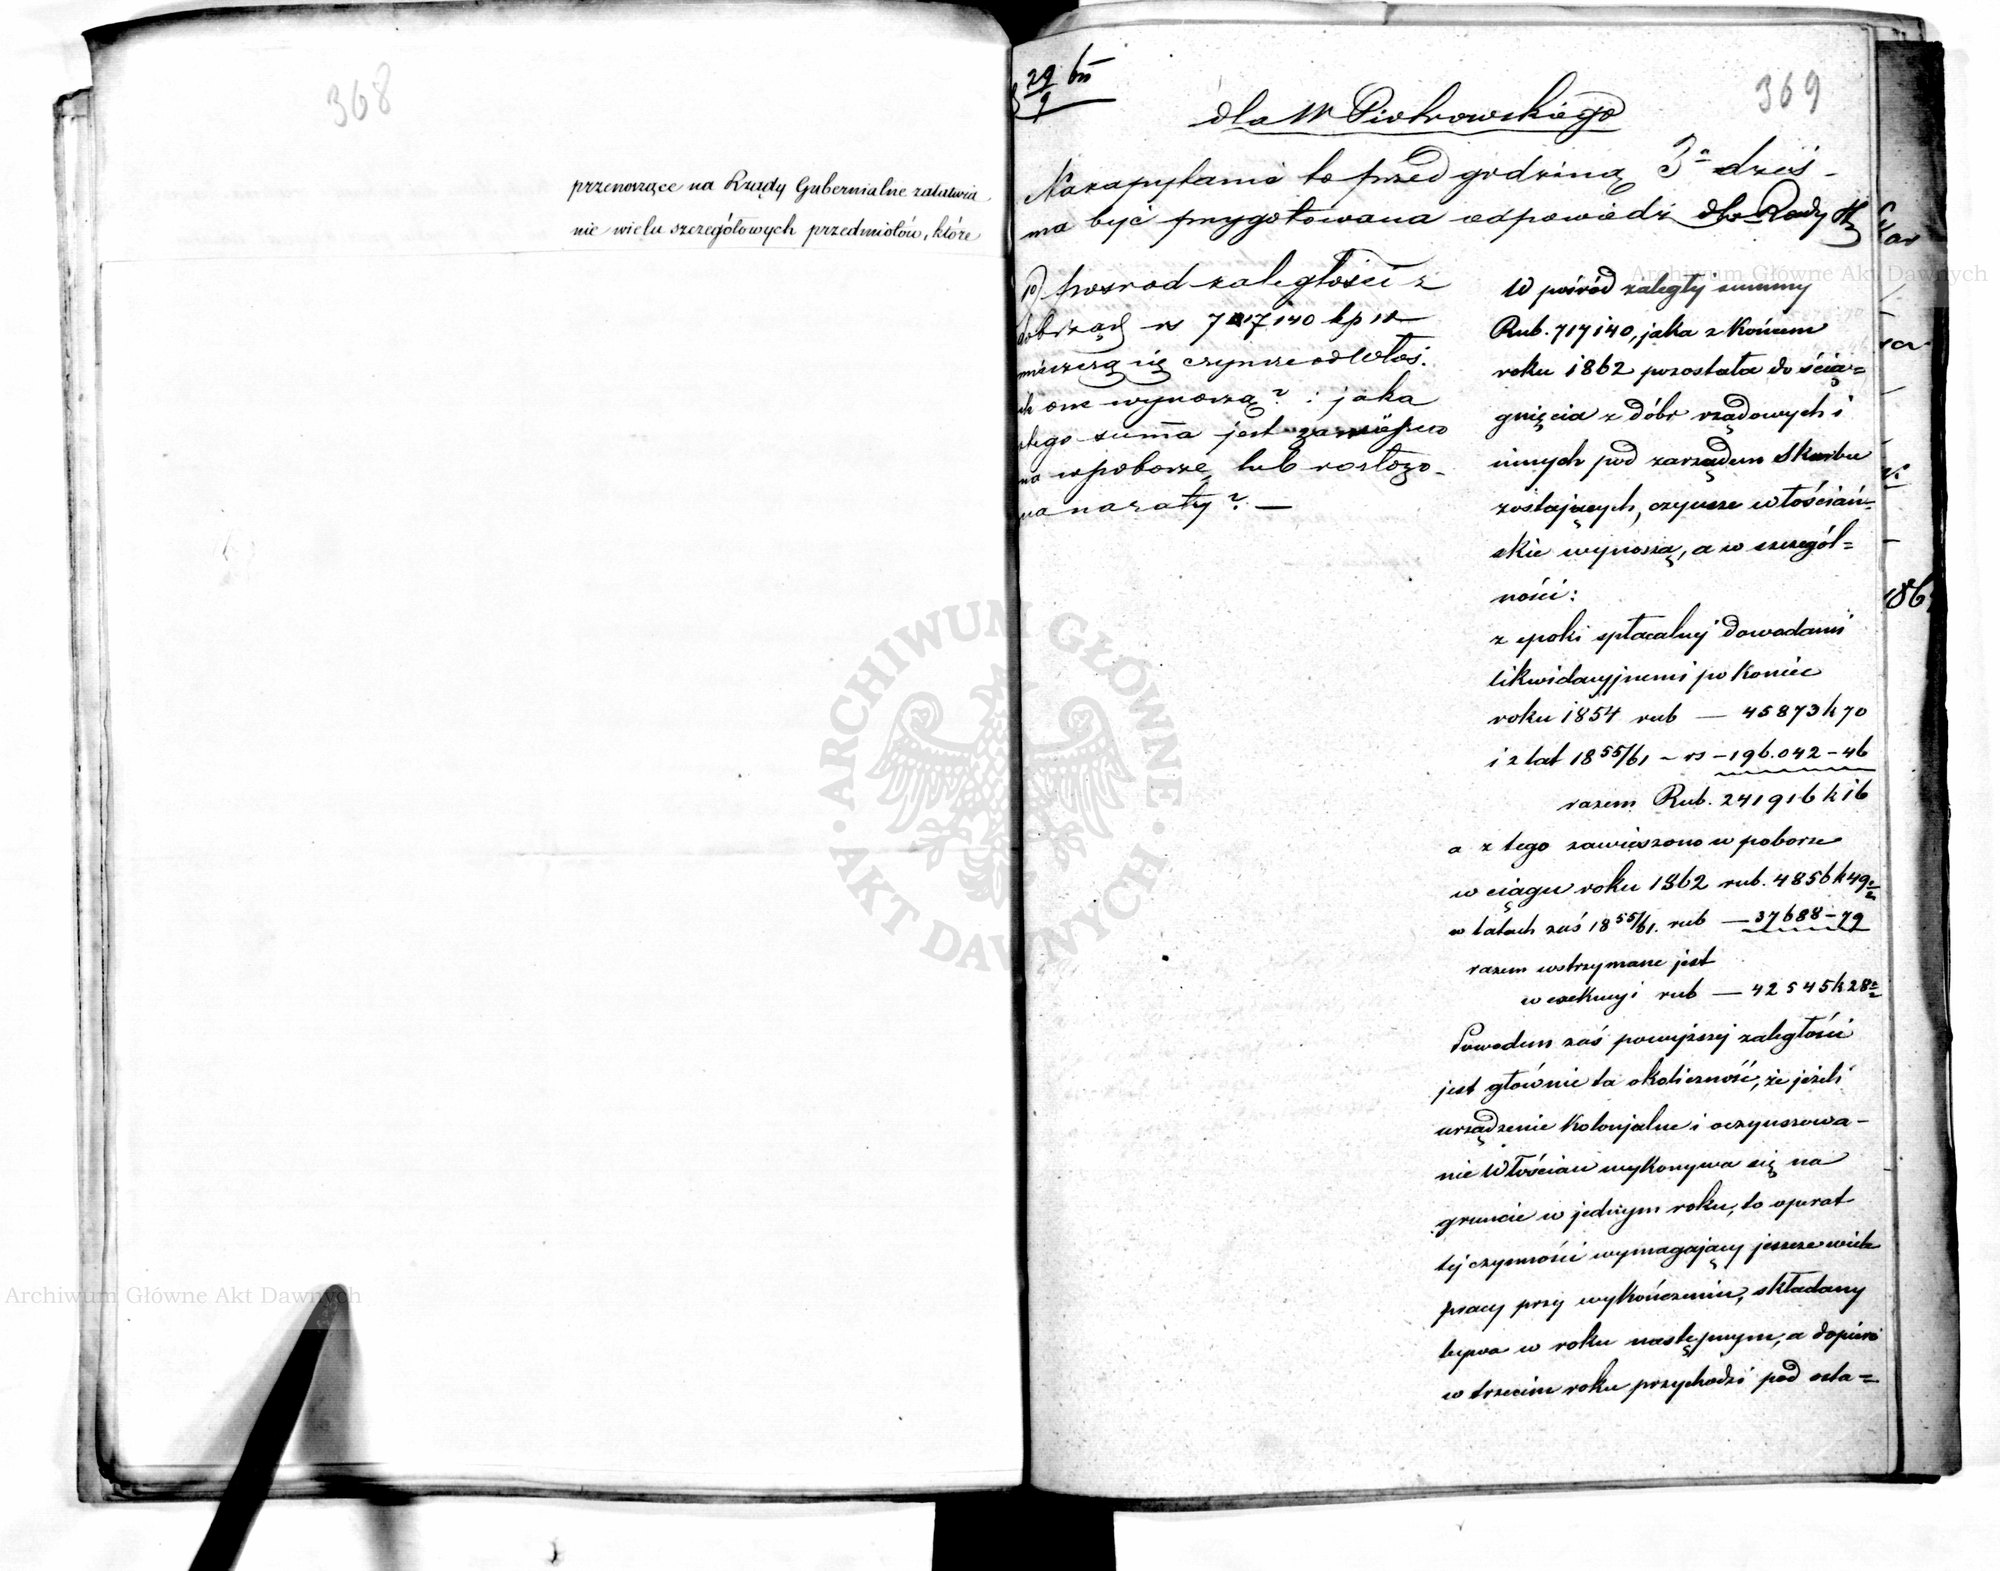 368
przenoszące na Rządy Gubernialne załatwia
nie wielu szczegółowych przedmiotów, które
29/9 br
369
dla W Piotrowskiego
Na zapytanie to przed godziną 3ą dziś
ma być przygotowana odpowiedź dla Rady
pośród zaległości z
dóbr rząd rs 717140 kp
mieszczą się czynsze od włoś.
ile one wynoszą? i jaka
z tego summa jest zawieszo
na w poborze, lub rozłożo-
na na raty? —
W pośród zaległej summy
Rub. 717140, jaka z końcem
roku 1862 pozostała do ścią=
gnięcia z dóbr rządowych i
innych pod zarządem Skarbu
zostających, czynsze włościań-
skie wynoszą, a w szczegól=
ności:
z epoki spłacalnej dowodami
likwidacyjnemi po koniec
roku 1854 rub — 45873 k 70
i z lat 1855/61 — rs — 196.042 — 46
razem Rub. 241916 k 16
a z tego zawieszono w poborze
w ciągu roku 1862 rub. 4856 k 49½
w latach zaś 1855/61. rub — 37688 — 79
razem wstrzymane jest
w exekucyi rub — 42545 k 28½
Powodem zaś powyższej zaległości
jest głównie ta okoliczność, że jeżeli
urządzenie kolonjalne i oczynszowa-
nie Włościan wykonywa się na
gruncie w jednym roku, to operat
tej czynności wymagający jeszcze wiele
pracy przy wykończeniu, składany
bywa w roku następnym, a dopiero
w trzecim roku przychodzi pod osta=
186
ARCHIWUM GŁÓWNE AKT DAWNYCH
Archiwum Główne Akt Dawnych
Archiwum Główne Akt Dawnych